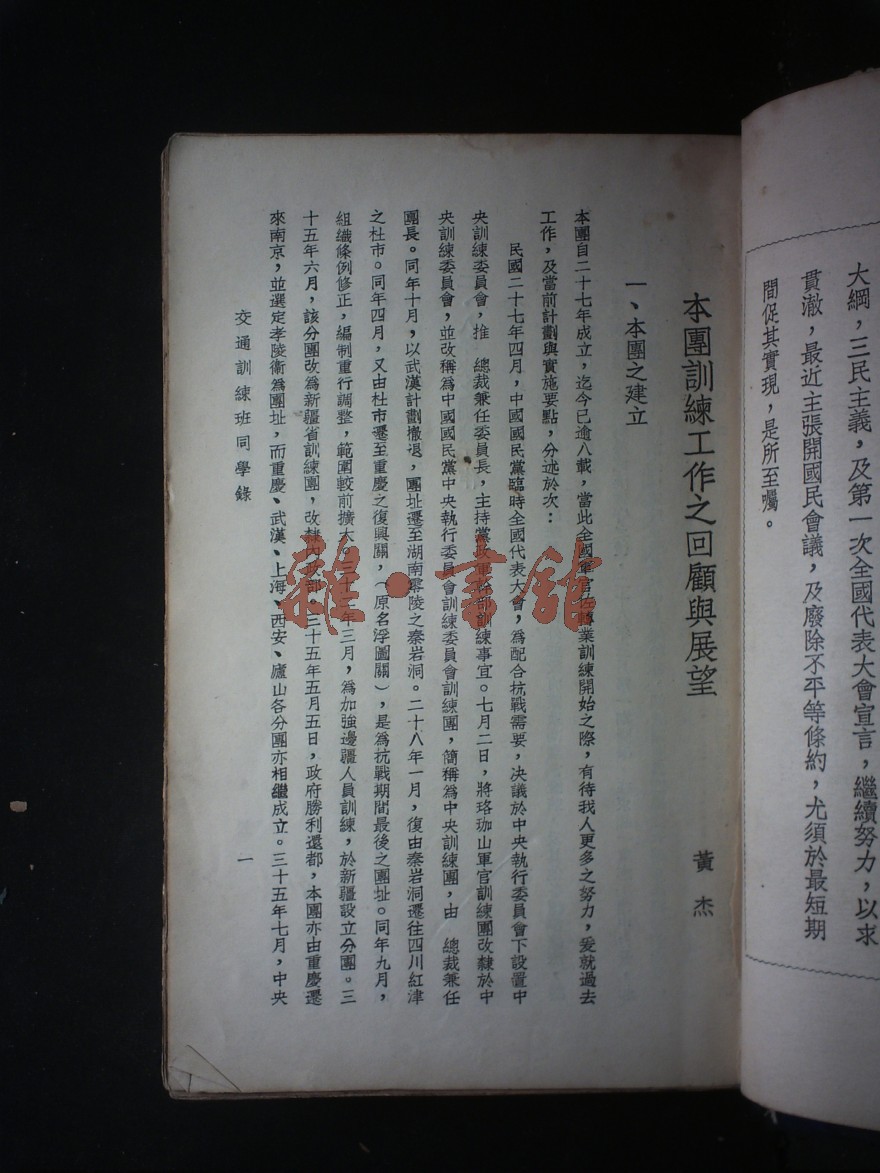 大綱，三民主義，及第一次全國代表大會宣言，繼續努力，以求
貫澈，最近主張開國民會議，及廢除不平等條約，尤須於最短期
間促其實現，是所至囑。
本團訓練工作之回顧與展望
黃杰
一、本團之建立
本團自二十七年成立，迄今已逾八載，當此全國軍官佐轉業訓練開始之際，有待我人更多之努力，爰就過去
工作，及當前計劃與實施要點，分述於次：
民國二十七年四月，中國國民黨臨時全國代表大會，為配合抗戰需要，決議於中央執行委員會下設置中
央訓練委員會，推　總裁兼任委員長，主持黨政軍幹部訓練事宜。七月二日，將珞珈山軍官訓練團改隸於中
央訓練委員會，並改稱為中國國民黨中央執行委員會訓練委員會訓練團，簡稱為中央訓練團，由　總裁兼任
團長。同年十月，以武漢計劃撤退，團址遷至湖南零陵之秦岩洞。二十八年一月，復由秦岩洞遷往四川紅津
之杜市。同年四月，又由杜市遷至重慶之復興關，（原名浮圖關），是為抗戰期間最後之團址。同年九月，
組織條例修正，編制重行調整，範圍較前擴大。三十二年三月，為加強邊疆人員訓練，於新疆設立分團。三
十五年六月，該分團改為新疆省訓練團，改隸內政部。三十五年五月五日，政府勝利還都，本團亦由重慶遷
來南京，並選定孝陵衛為團址，而重慶、武漢、上海、西安、廬山各分團亦相繼成立。三十五年七月，中央
交通訓練班同學錄
一
雜·書舘